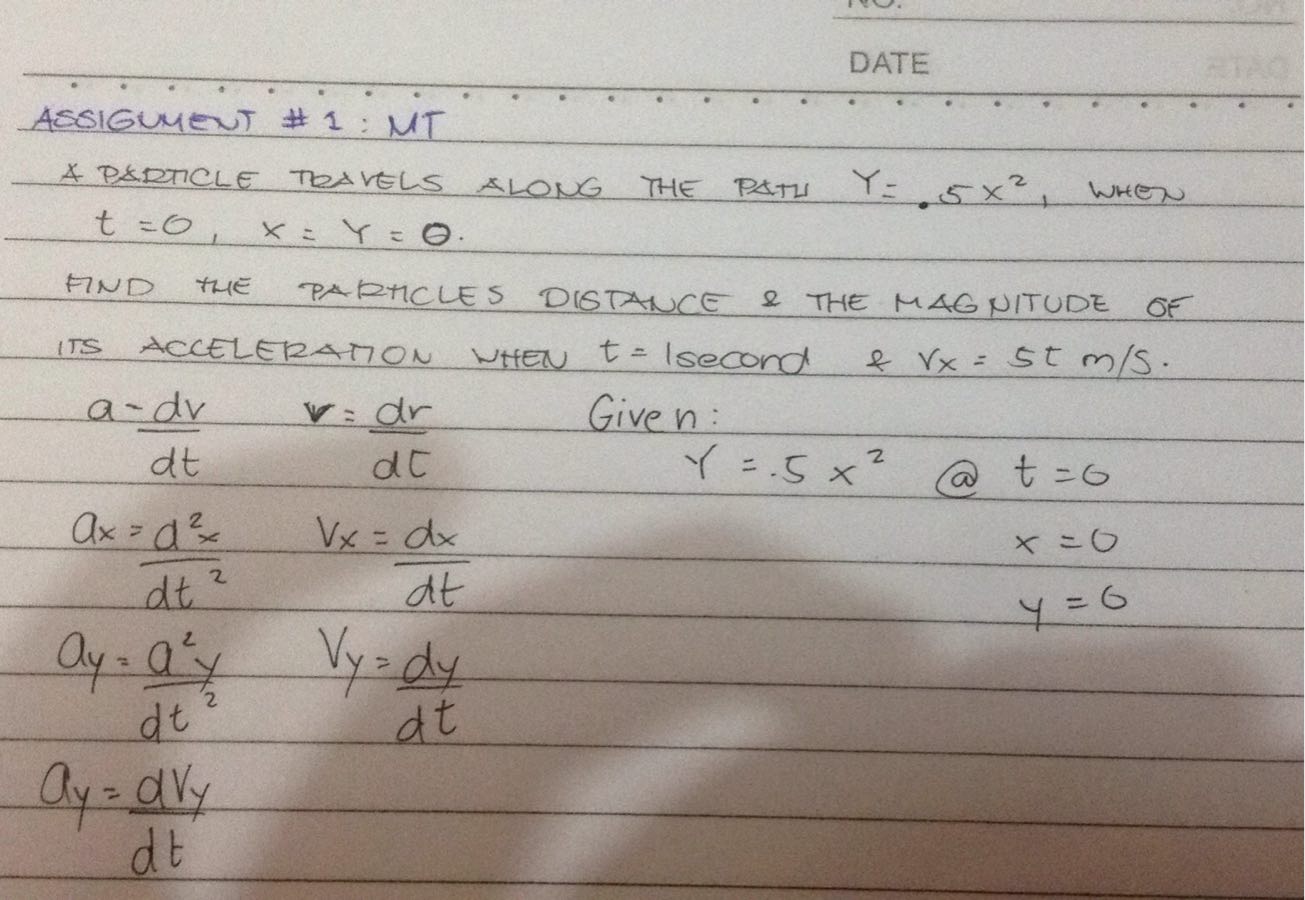 NO.
DATE
ASSIGNMENT # 1 : MT
A PARTICLE TRAVELS ALONG THE PATH Y = .5x², WHEN
t = 0, x = Y = 0.
FIND THE PARTICLES DISTANCE & THE MAGNITUDE OF
ITS ACCELERATION WHEN t = 1second & Vx = 5t m/s.
a - dv/dt v = dr/dt Given:
Y = .5x² @ t = 0
ax = d²x/dt² Vx = dx/dt x = 0
y = 0
ay = d²y/dt² Vy = dy/dt
ay = dVy/dt